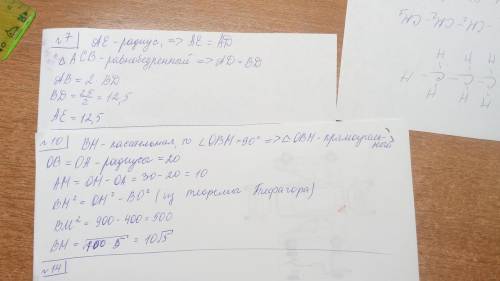 №7 AE - радиус, => AE = AD
△ACB - равнобедренный => AD = BD
AB = 2 BD
BD = 25/2 = 12,5
AE = 12,5
№10 BH - касательная, то ∠OBH = 90° => △OBH - прямоугольный
OB = OA - радиусы = 20
AH = OH - OA = 30 - 20 = 10
BH² = OH² - BO² (из теоремы Пифагора)
BH² = 900 - 400 = 500
BH = √100·5 = 10√5
№14
- CH₂ - CH₃
H H
H - C - C -
H H